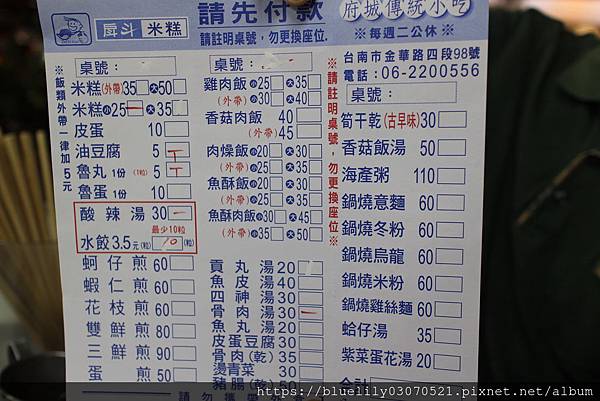 戽斗米糕
請先付款
請註明桌號,勿更換座位.
府城傳統小吃
※每週二公休※
台南市金華路四段98號
電話:06-2200556
※飯類外帶一律加5元
桌號:
米糕(外帶)35 大50
米糕小25 大35
皮蛋 10
油豆腐 5
魯丸1份(1粒) 5
魯蛋1份 10
酸辣湯30
最少10粒
水餃3.5元(粒) 10(粒)
蚵仔煎60
蝦仁煎60
花枝煎60
雙鮮煎80
三鮮煎90
蛋煎50
桌號:
雞肉飯小25 大35
(外帶)小30 大40
香菇肉飯 40
(外帶) 45
肉燥飯小20 大30
(外帶)小25 大35
魚酥飯小20 大30
(外帶)小25 大35
魚酥肉飯小30 大45
(外帶)小35 大50
貢丸湯20
魚皮湯40
四神湯30
骨肉湯30
魚丸湯20
皮蛋豆腐30
骨肉(乾)35
燙青菜30
豬腸(乾)50
※請註明桌號,勿更換座位※
桌號:
筍干乾(古早味)30
香菇飯湯 50
海產粥 110
鍋燒意麵60
鍋燒冬粉60
鍋燒烏龍60
鍋燒米粉60
鍋燒雞絲麵60
蛤仔湯 35
紫菜蛋花湯20
合計
https://bluelily03070521.pixnet.net/album